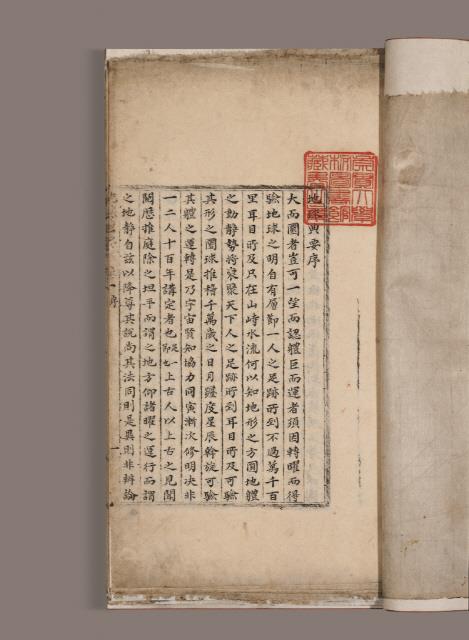 地球典要序
大而圜者豈可一望而認體巨而運者須因轉曜而得
驗地球之明自有層節一人之足跡所到不過萬千百
里耳目所及只在山峙水流何以知地形之方圓地體
之動靜勢將裒聚天下人之足跡所到耳目所及可驗
其形之圜球推稽千萬歲之日月躔度星辰斡旋可驗
其體之運轉是乃宇宙賢知協力同寅漸次修明决非
一二人十百年講定者也是一節也上古人以上古之見聞
閱歷推庭除之坦平而謂之地方仰諸曜之運行而謂
之地靜自玆以降每其說尚其法同則是異則非辨論
序